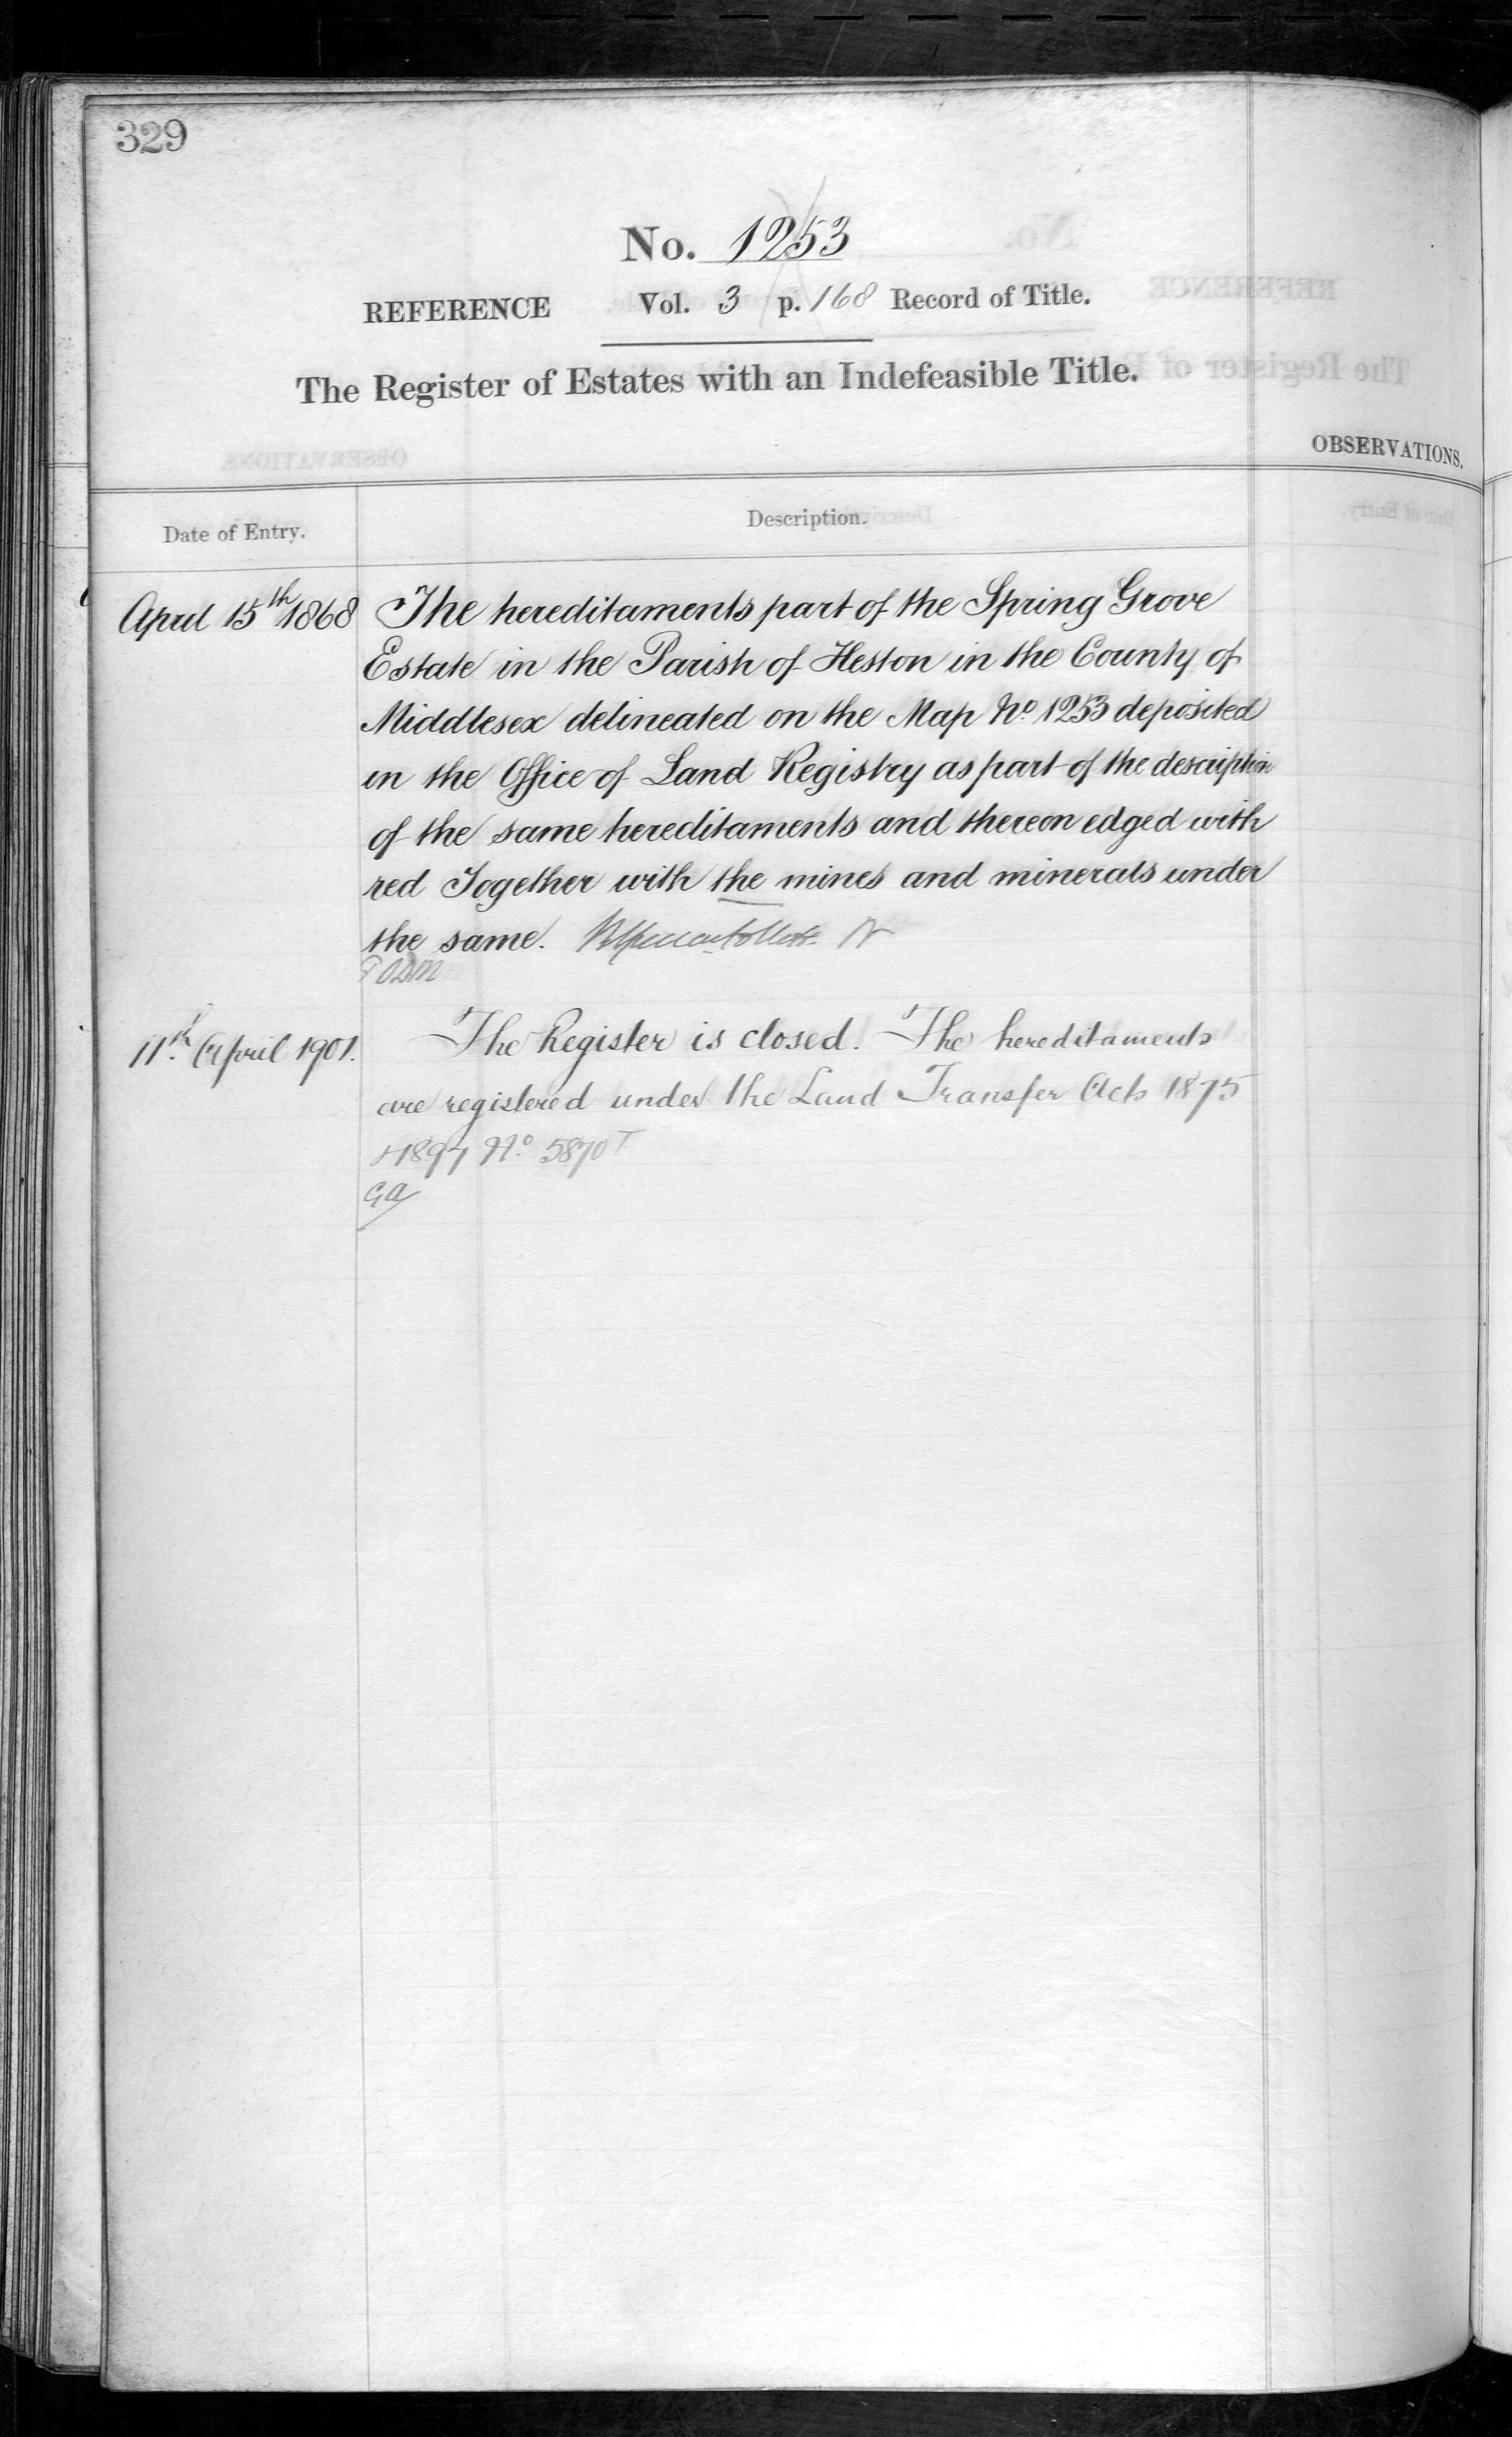 329
No. 1253
REFERENCE Vol. 3 p. 168 Record of Title.
The Register of Estates with an Indefeasible Title.
OBSERVATIONS.
Date of Entry. Description.
April 15th 1868 The hereditaments part of the Spring Grove
Estate in the Parish of Heston in the County of
Middlesex delineated on the Map No. 1253 deposited
in the Office of Land Registry as part of the description
of the same hereditaments and thereon edged with
red Together with the mines and minerals under
the same.
11th April 1901. The Register is closed. The hereditaments
are registered under the Land Transfer Acts 1875
& 1897 No. 5870
GA